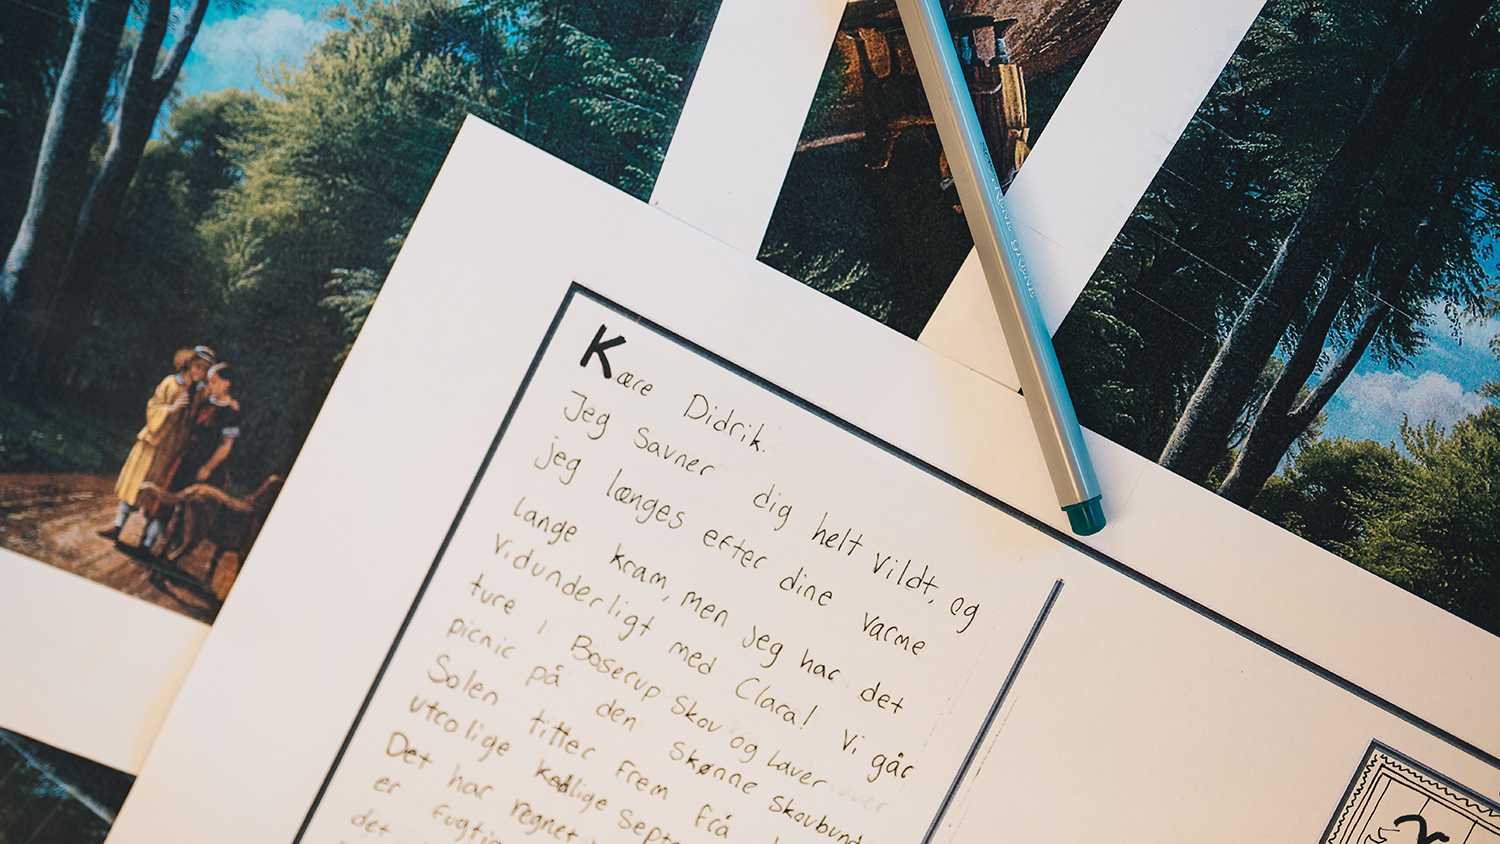 Kære Didrik.
Jeg savner dig helt vildt, og
jeg længes efter dine varme
lange kram, men jeg har det
vidunderligt med Clara! Vi går
ture i Boserup Skov og laver
picnic på den skønne skovbund
Solen titter frem fra
utrolige kødlige septe
Det har regnet
er fugtig
det